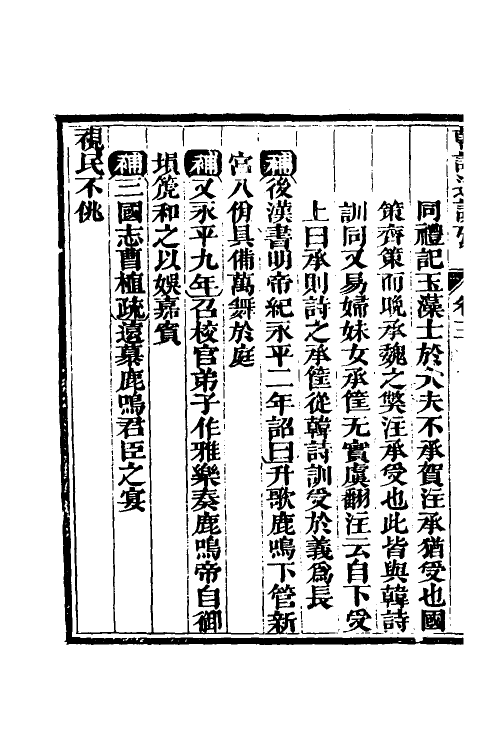 同禮記玉藻士於大夫不承賀注承猶受也國
策齊策而晚承魏之獘注承受也此皆與韓詩
訓同又易婦妹女承筐无實虞翻注云自下受
上曰承則詩之承筐從韓詩訓受於義爲長
補後漢書明帝紀永平二年詔曰升歌鹿鳴下管新
宮八佾具備萬舞於庭
補又永平九年召校官弟子作雅樂奏鹿鳴帝自御
塤箎和之以娛嘉賓
補三國志曹植疏遠慕鹿鳴君臣之宴
視民不佻